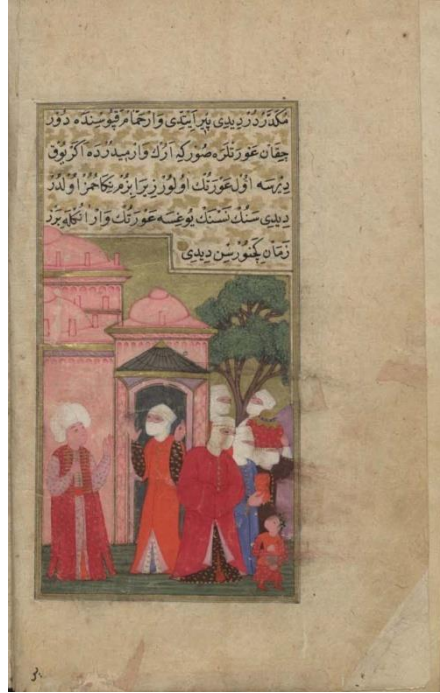 مكدّردر ديدى پير ايتدى وار حمّام قپوسنده دور
چقان عورتلره صور كه ارك وارميدر ده اكر يوق
ديرسه اول عورتك اولور زيرا بزم نكاحمز اولدر
ديدى سنك نسنك يوغيسه عورتك وار انكله بر
زمان كچنورسن ديدى